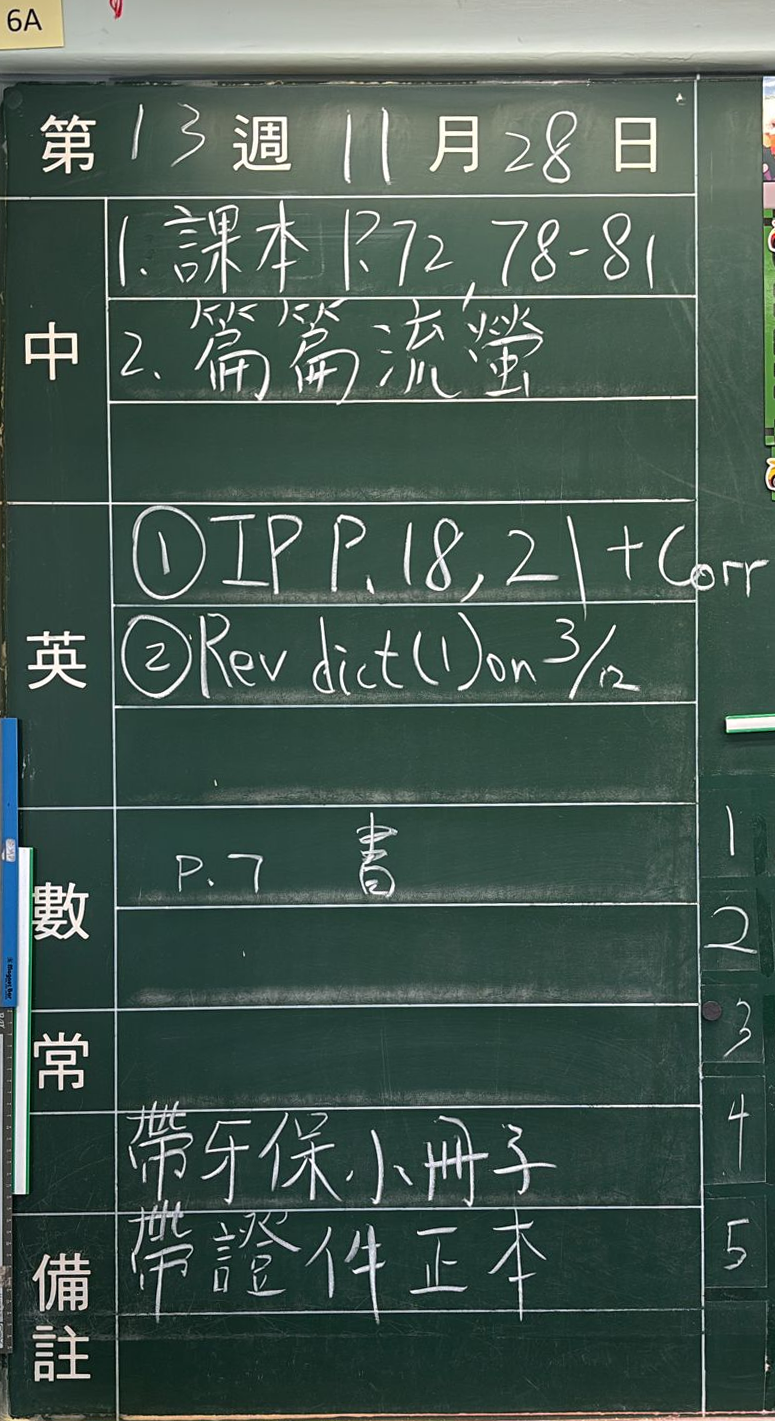 6A
第 13 週 11 月 28 日
中
1. 課本 P.72, 78-81
2. 篇篇流螢
英
① IP P.18, 21 + Corr
② Rev dict(1) on 3/12
數
P.7 書
常
帶牙保小冊子
備註
帶證件正本
1
2
3
4
5